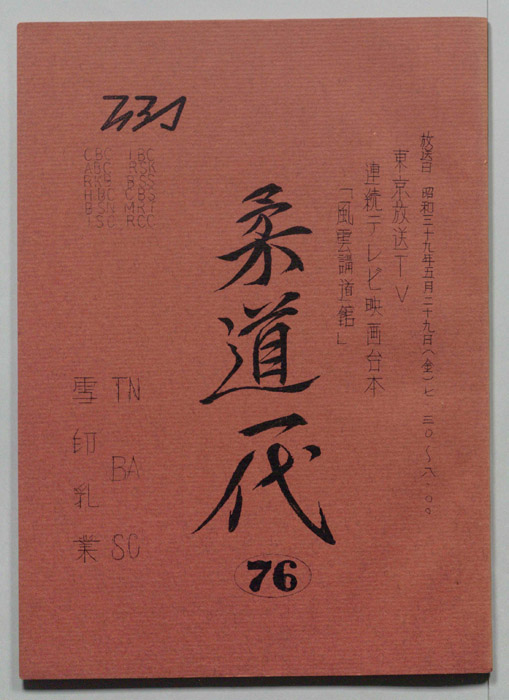 放送日 昭和三十九年五月二十九日(金)七、三〇~八、〇〇
東京放送TV
連続テレビ映画台本
「風雲講道館」
柔道一代
76
TN BA SC
雪印乳業